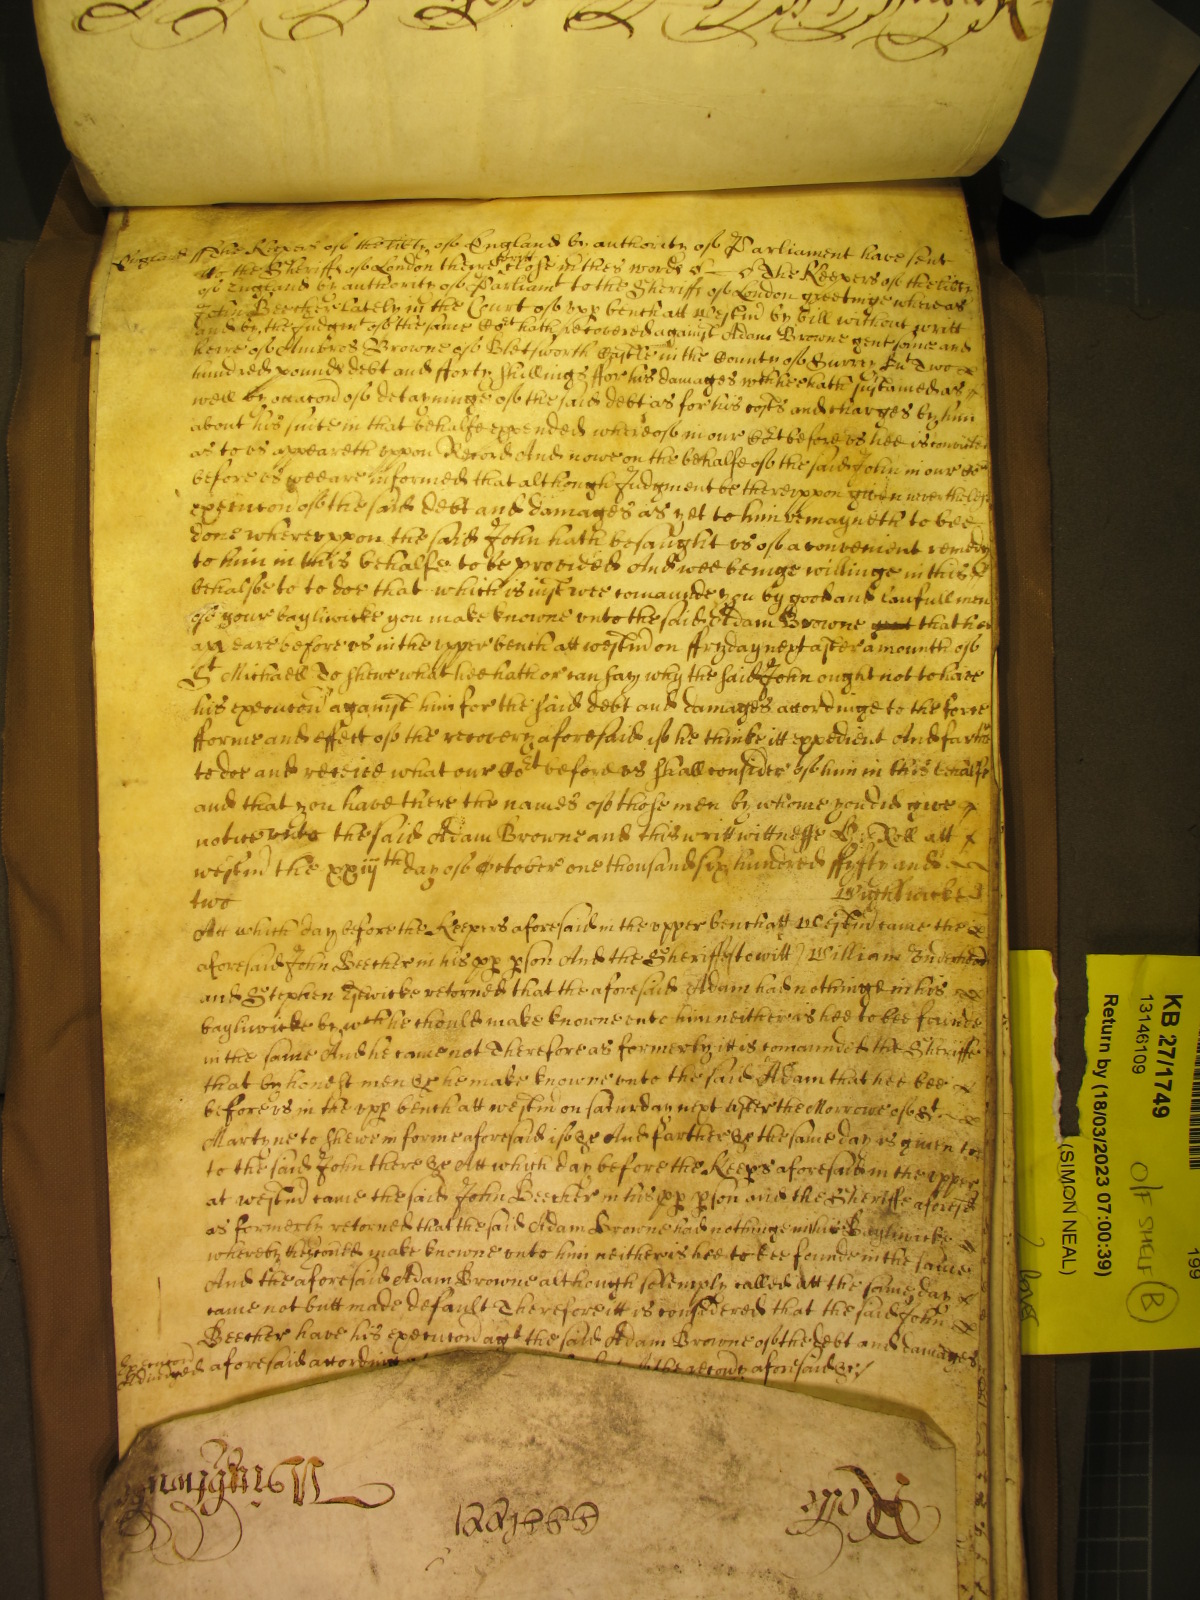 England ss The Keepers of the lib'ty of England by authority of Parliament have sent
to the Sheriffs of London theire writt close in thes words ss The Keepers of the liberty
of England by authority of Parliamt to the Sheriffs of London greetinge whereas
John Beecher lately in the Court of upp bench att Westm̄ by bill without writt
and by the Judgmt of the same Cort hath recovered against Adam Browne gent sonne and
heire of Ambros Browne of Bletsworth Castle in the County of Surrey Kt Two
hundred pounds debt and fforty shillings ffor his damages wch hee hath sustained as
well by occac̄on of detayninge of the said debt as for his costs and charges by him
about his suite in that behalfe expended whereof in our Cort before us hee is convicted
as to us appeareth uppon Record And nowe on the behalfe of the said John in our Cort
before us wee are informed that although Judgment be thereuppon given neverthelesse
execuc̄on of the said debt and damages as yet to him remayneth to bee
done whereuppon the said John hath besaught us of a convenient remedy
to him in this behalfe to be provided And wee beinge willinge in this
behalfe to to doe that which is just wee comaunde you by good and lawfull men
of your bayliwicke you make knowne unto the said Adam Browne that hee
appeare before us in the upper bench att westm̄ on ffryday next after a mounth of
St Michaell To shewe what hee hath or can say why the said John ought not to have
his execuc̄on against him for the said debt and damages accordinge to the force
fforme and effect of the recovery aforesaid if he thinke itt expedient And farther
to doe and receive what our Cort before us shall consider of him in this behalfe
and that you have there the names of those men by whome you did give
notice unto the said Adam Browne and this writt wittnesse H: Roll att
westm̄ the xxiijth day of October one thousand six hundred ffyfty and
two Wightwicke
Att which day before the Keepers aforesaid in the upper bench att Westm̄ came the
aforesaid John Beecher in his pp pson And the Sheriffs to witt William
and Stephen Estwicke retorned that the aforesaid Adam had nothinge in his
bayliwicke by wch he should make knowne unto him neither is hee to bee founde
in the same And he came not Therefore as formerly itt is comaunded the Sheriffs
that by honest men &c he make knowne unto the said Adam that hee bee
before us in the upp bench att westm̄ on saturday next after the Morrowe of St
Martyne to shewe in forme aforesaid if &c And farther &c the same day is given to
to the said John there &c Att which day before the Keeps aforesaid in the upper
at westm̄ came the said John Beecher in his pp pson and the Sheriffe aforesd
as formerly retorned that the said Adam Browne had nothinge in his Bayliwicke
whereby hee could make knowne unto him neither is hee to bee founde in the same
And the aforesaid Adam Browne although solemply called att the same day
came not butt made default Therefore itt is considered that the said John
Beecher have his execuc̄on agt the said Adam Browne of the debt and damages
Execuc̄on
adiudged aforesaid accordinge the recovy aforesaid &c
Rolle
KB 27/1749
13146109
Return by (18/03/2023 07:00:39)
(SIMON NEAL)
O/F SHELF B
199